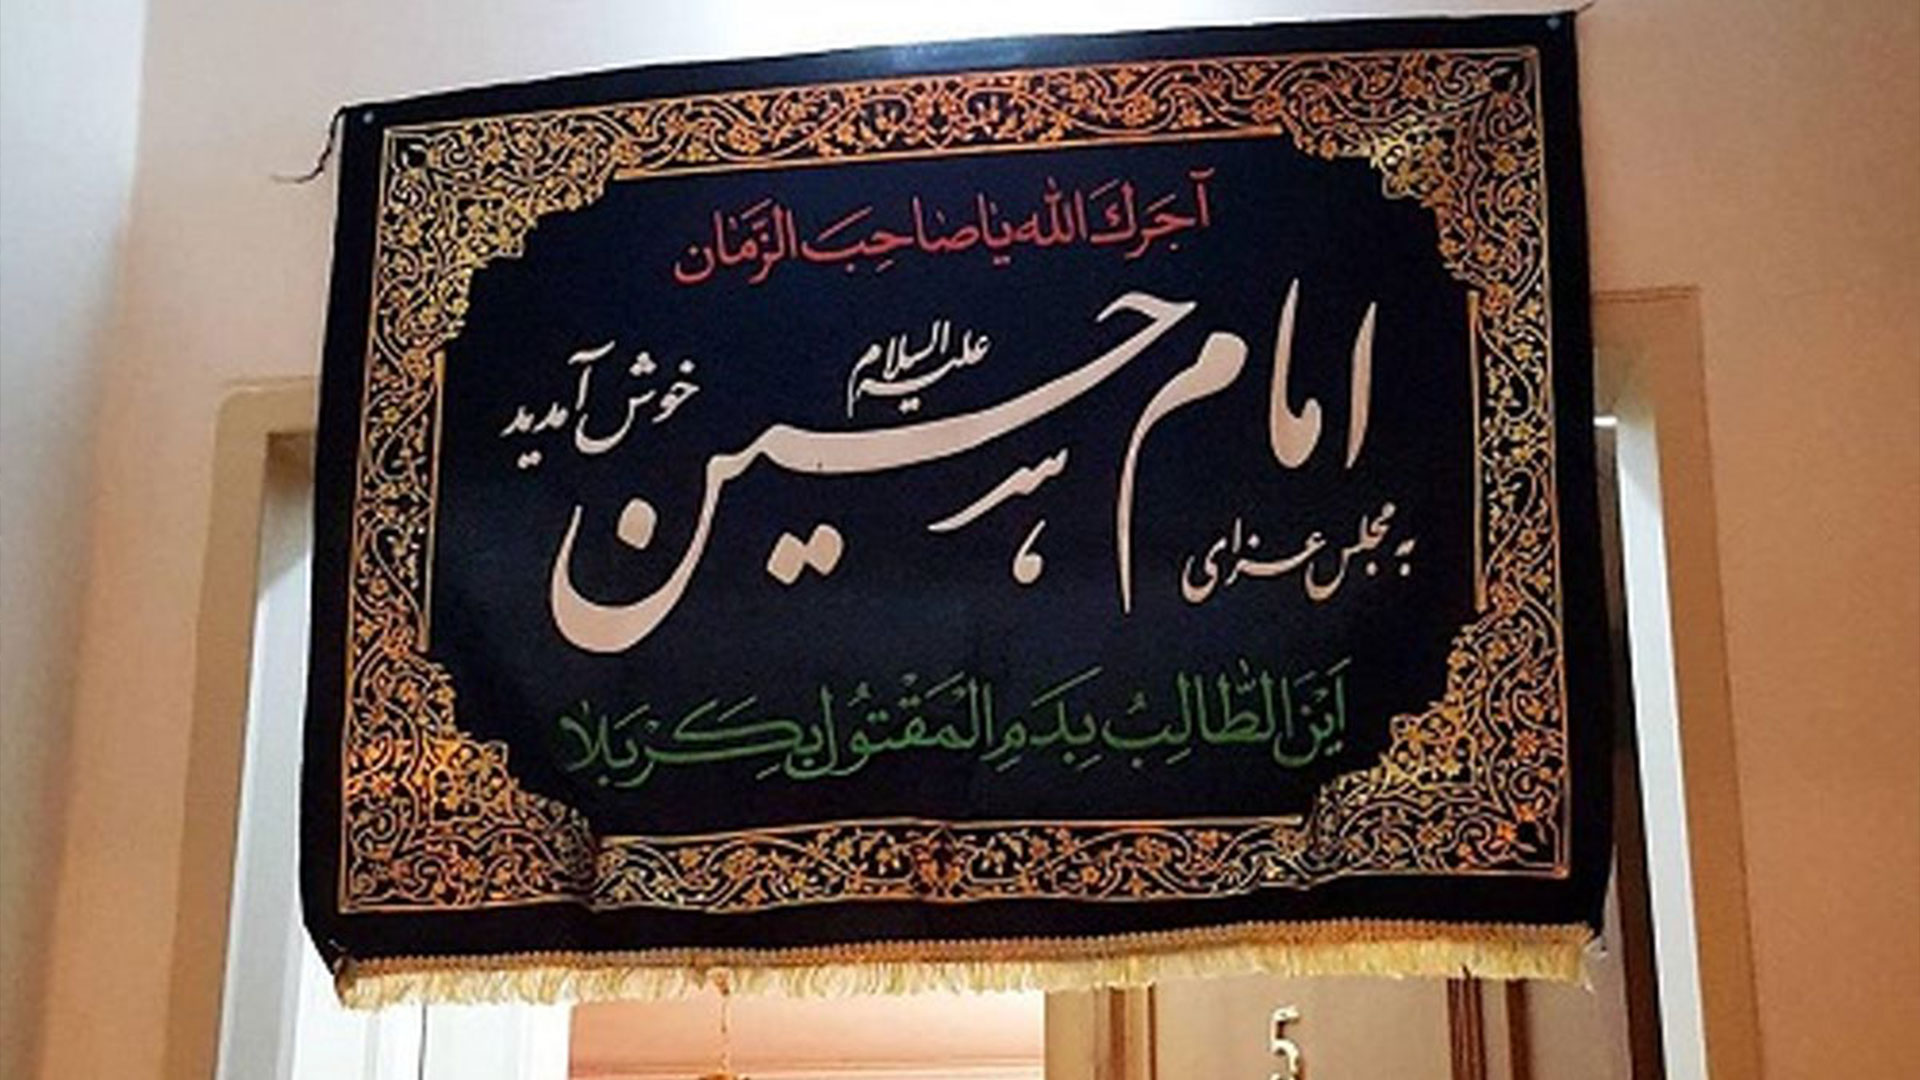 آجَرَكَ الله يا صاحِبَ الزَّمان
به مجلس عزای
امام حسین علیه السلام
خوش آمدید
اَیْنَ الطّالِبُ بِدَمِ الْمَقْتُولِ بِكَرْبَلا
5